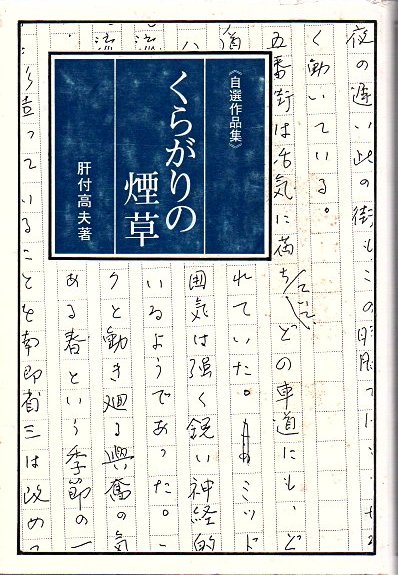 《自選作品集》
くらがりの
煙草
肝付高夫著
夜の遅い此の街もこの
く動いている。
五番街は活気に満ち どの車道にも、ど
れていた。 ミッド
囲気は強く鋭い神経的
いるようであった。
クと動き廻る興奮の気
ある春という季節の一
っていることを南 省三は改め